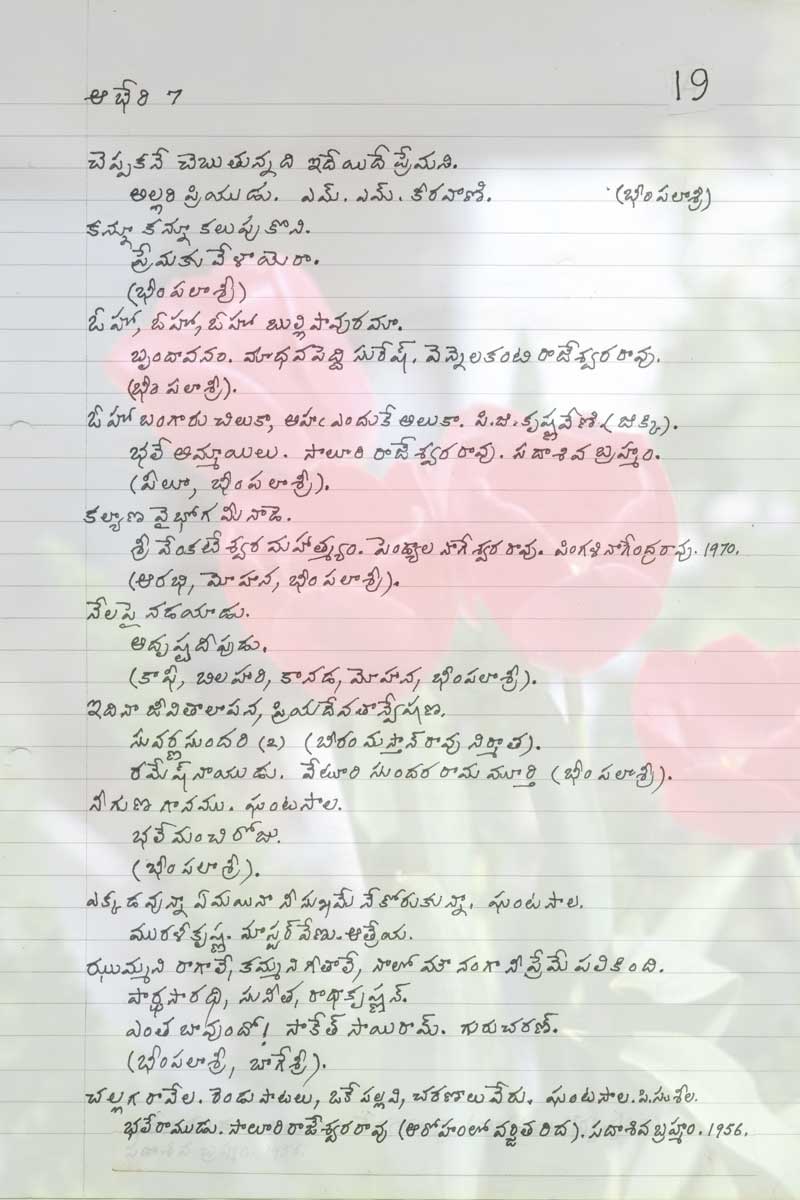 ఆభేరి 7
19
చెప్పకనే చెబుతున్నది ఇదేయిదే ప్రేమని.
అల్లరి ప్రియుడు. ఎమ్. ఎమ్. కీరవాణి. (భీంపలాశ్రీ)
కన్నూ కన్నూ కలుపుకొని.
ప్రేమకు వేళాయెరా.
(భీంపలాశ్రీ)
ఓహో, ఓహో, ఓహో బుల్లి పావురమా.
బృందావనం. మాధవపెద్ది సురేష్. వెన్నెలకంటి రాజేశ్వరరావు.
(భీంపలాశ్రీ).
ఓహో బంగారు చిలుకా, ఆహఁ ఎందుకే అలుకా. పి.జి.కృష్ణవేణి.(జిక్కి).
భలే అమ్మాయిలు. సాలూరి రాజేశ్వరరావు. సదాశివ బ్రహ్మం.
(పీలూ, భీంపలాశ్రీ).
కల్యాణ వైభోగమీనాడె.
శ్రీ వేంకటేశ్వర మహాత్మ్యం. పెండ్యాల నాగేశ్వరరావు. పింగళి నాగేంద్రరావు. 1970.
(ఆరభి, మోహన, భీంపలాశ్రీ).
నేలపై నడయాడు.
అదృష్టదీపుడు.
(కాఫీ, బిలహరి, కానడ, మోహన, భీంపలాశ్రీ).
ఇది నా జీవితాలాపన, ప్రియదేవతాన్వేషణ.
సువర్ణసుందరి (2) (బీరం మస్తాన్ రావు నిర్మాత).
రమేష్ నాయుడు. వేటూరి సుందరరామమూర్తి (భీంపలాశ్రీ).
నీ గుణ గానము. ఘంటసాల.
భలే మంచి రోజు.
(భీంపలాశ్రీ).
ఎక్కడవున్నా ఏమయినా నీ సుఖమే నేకోరుతున్నా. ఘంటసాల.
మురళీకృష్ణ. మాస్టర్ వేణు. ఆత్రేయ.
ఝుమ్మని రాగాలే, కమ్మని గీతాలే, నాలో మౌనంగా నీ ప్రేమే పలికింది.
పార్థసారథి, సునీత, రాధాకృష్ణన్.
ఎంత బావుందో! సాకేత్ సాయిరామ్. గురుచరణ్.
(భీంపలాశ్రీ, బాగేశ్రీ).
చల్లగ రావేల. రెండు పాటలు, ఒకే పల్లవి, చరణాలు వేరు. ఘంటసాల. పి.సుశీల.
భలేరాముడు. సాలూరి రాజేశ్వరరావు (ఆరోహంలో వర్జిత రిద). సదాశివ బ్రహ్మం. 1956.